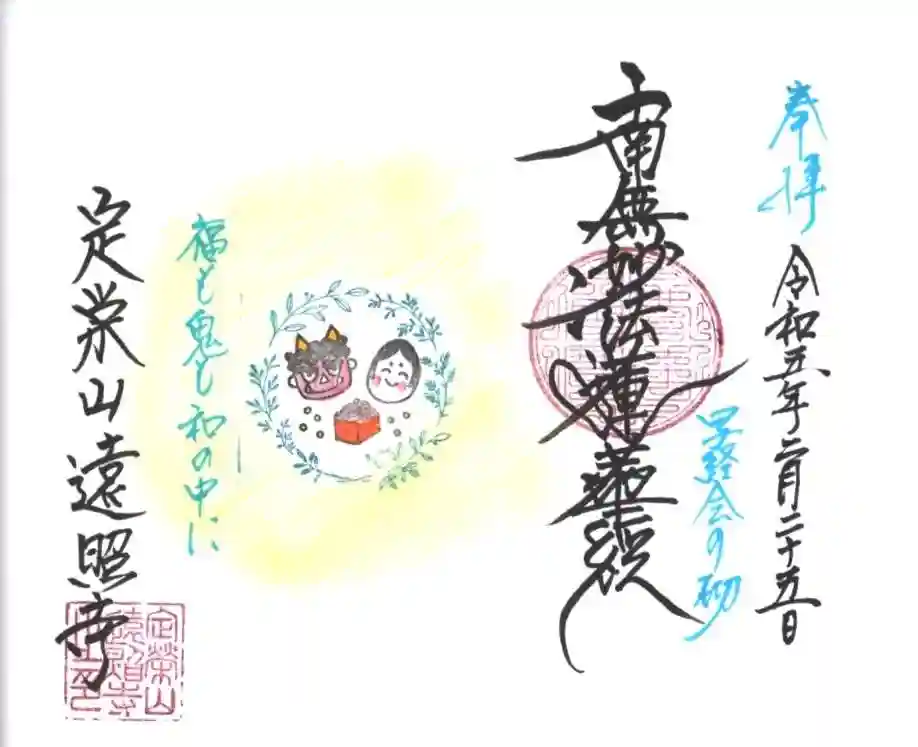 奉拝
令和五年二月二十五日
写経会の砌
南無妙法蓮華経
福も鬼も和の中に
定栄山遠照寺